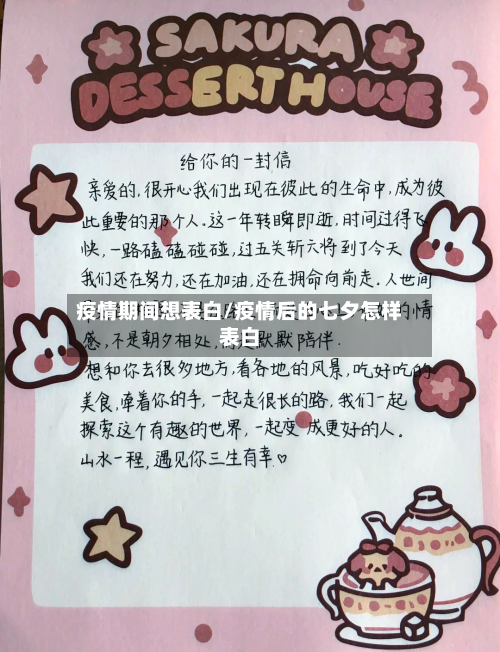 SAKURA
DESSERT HOUSE
给你的一封信
亲爱的，很开心我们出现在彼此的生命中，成为彼
此重要的那个人．这一年转瞬即逝，时间过得飞
快，一路磕磕碰碰，过五关斩六将到了今天
我们还在努力，还在加油，还在拥命向前走．人世间
疫情期间想表白/疫情后的七夕怎样
表白
的情
感，不是朝夕相处，默默陪伴．
想和你去很多地方，看各地的风景，吃好吃的
美食，牵着你的手，一起走很长的路，我们一起
探索这个有趣的世界，一起变成更好的人。
山水一程，遇见你三生有幸♡